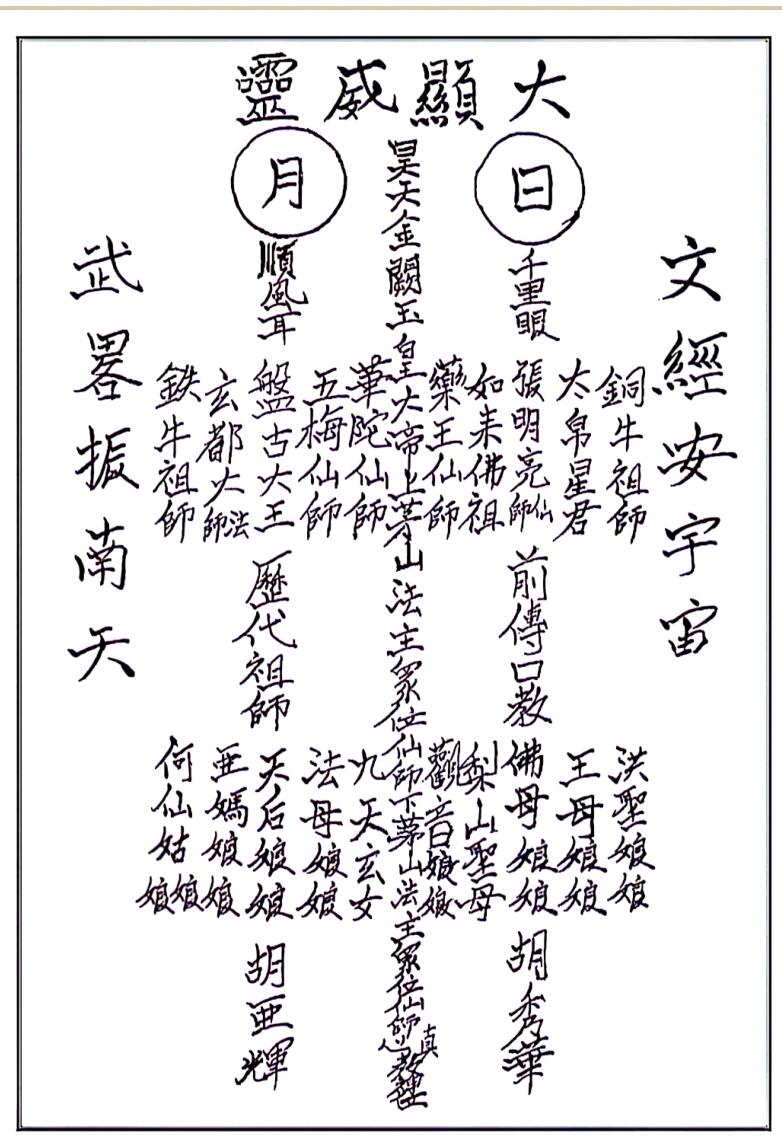 大顯威靈
日
月
文經安宇宙
千里眼
昊天金闕玉皇大帝上茅山法主眾位仙師下茅山法主眾位仙師
順風耳
武畧振南天
銅牛祖師
太帛星君
張明亮仙師
如来佛祖
藥王仙師
華陀仙師
五梅仙師
盤古大王
玄都大法師
鉄牛祖師
前傳口教
歷代祖師
洪聖娘娘
王母娘娘
佛母娘娘
梨山聖母
觀音娘娘
九天玄女
法母娘娘
天后娘娘
亜媽娘娘
何仙姑娘娘
胡秀華
胡亜輝